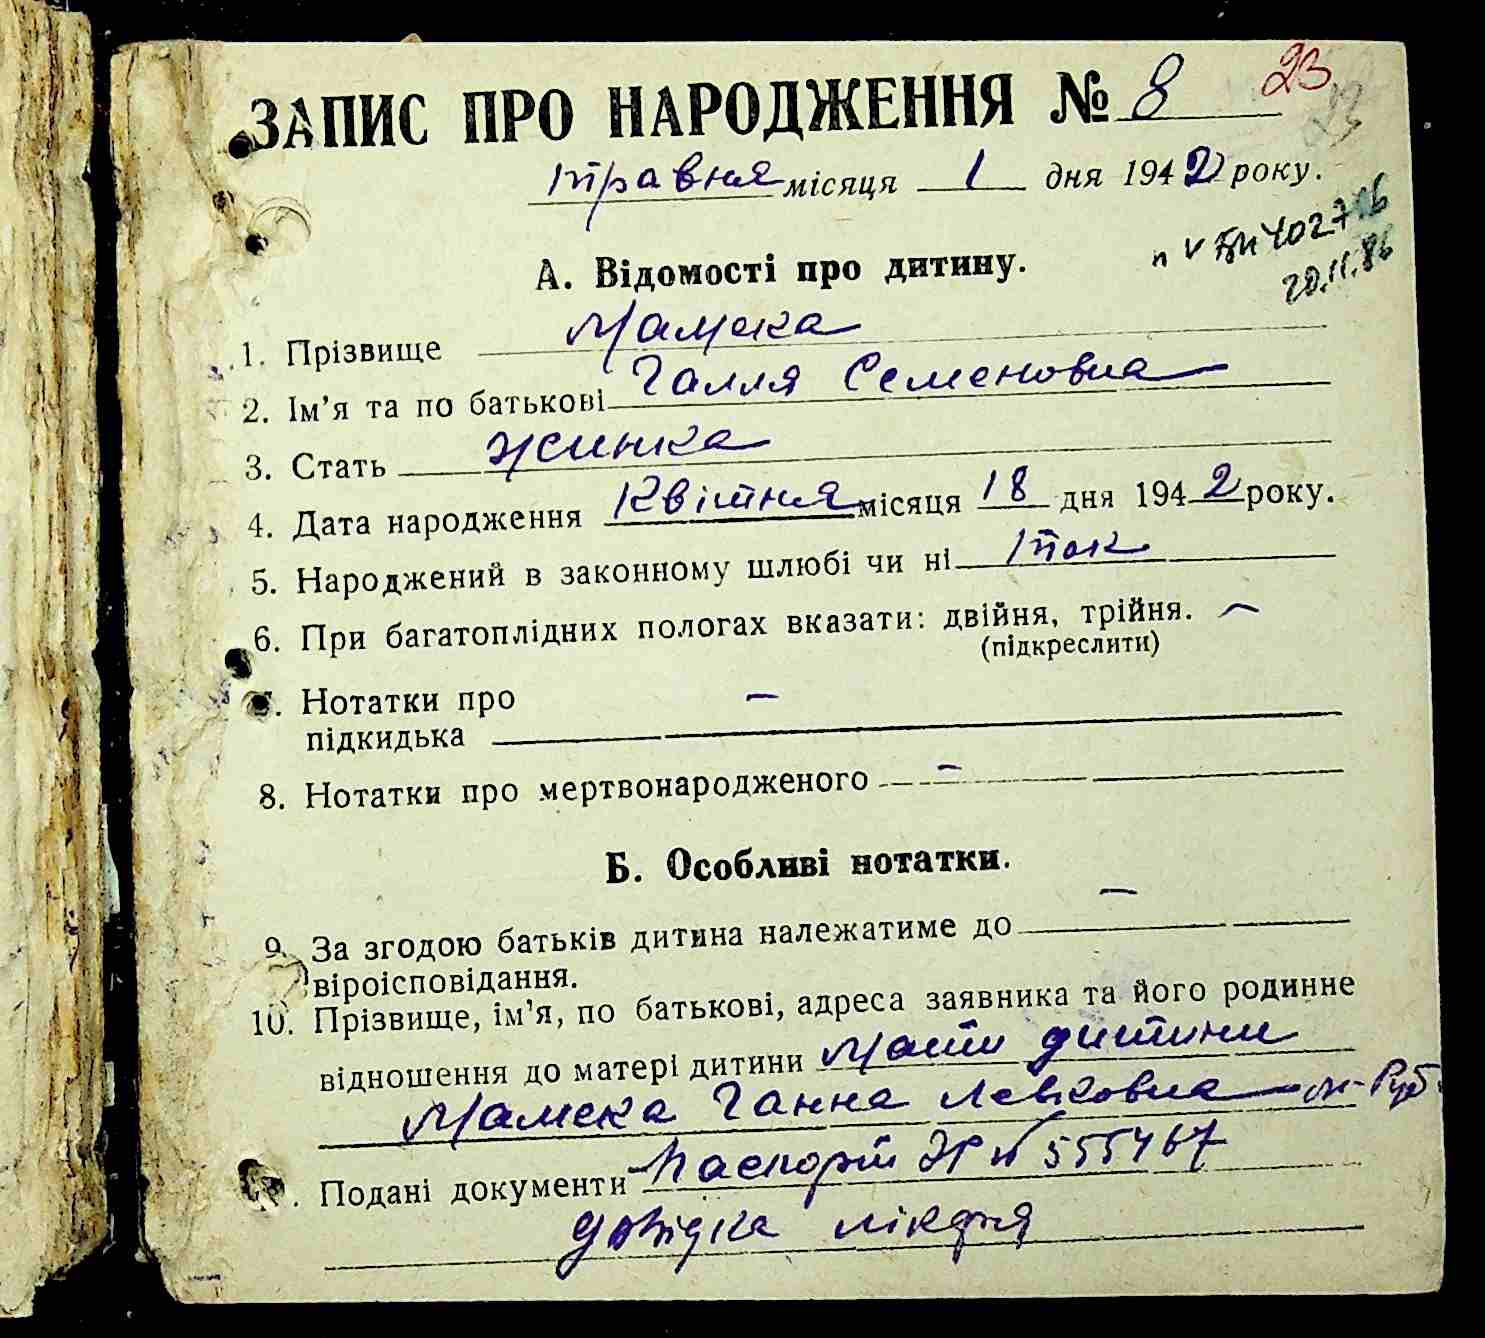 ЗАПИС ПРО НАРОДЖЕННЯ № 8 23
23
травня місяця 1 дня 1942 року.
20.11.86
А. Відомості про дитину.
1. Прізвище Мамека
2. Ім'я та по батькові Галля Семеновна
3. Стать жинка
4. Дата народження Квітня місяця 18 дня 1942 року.
5. Народжений в законному шлюбі чи ні Так
6. При багатоплідних пологах вказати: двійня, трійня. —
(підкреслити)
. Нотатки про —
підкидька
8. Нотатки про мертвонародженого —
Б. Особливі нотатки.
9. За згодою батьків дитина належатиме до —
віроісповідання.
10. Прізвище, ім'я, по батькові, адреса заявника та його родинне
відношення до матері дитини Мати дитини
Мамека Ганна Левковна
. Подані документи Паспорт № 555467
довідка лікаря